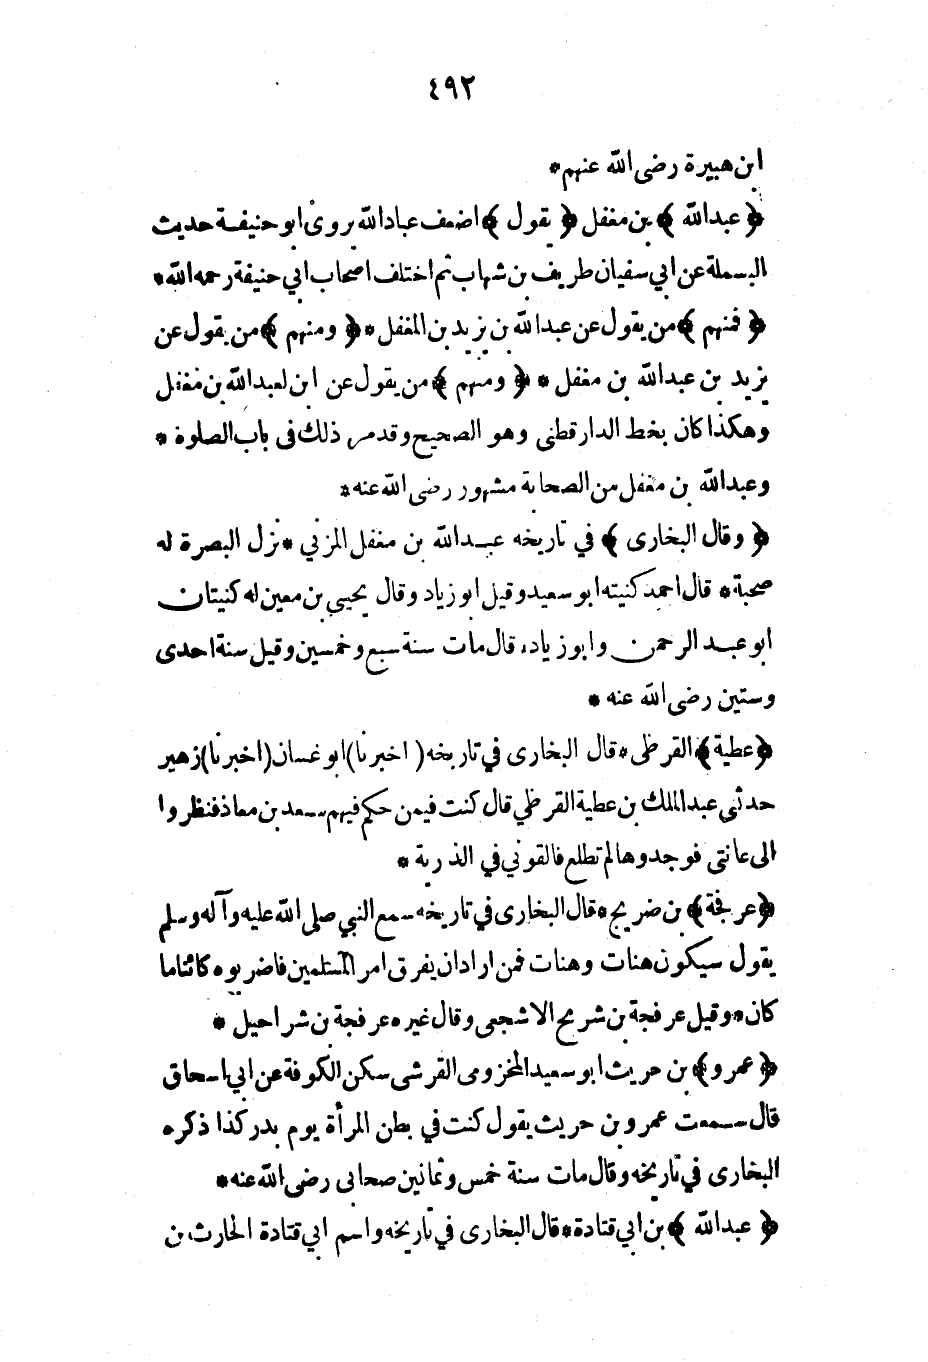 ٤٩٢
ابن هبيرة رضى الله عنهم*
﴿ عبدالله ﴾ بن مغفل ﴿ يقول ﴾ اضعف عبادالله يروى ابو حنيفة حديث
البسملة عن ابي سفيان طريف بن شهاب ثم اختلف اصحاب ابي حنيفة رحمه الله*
﴿ فمنهم ﴾ من يقول عن عبدالله بن يزيد بن المغفل * ﴿ ومنهم ﴾ من يقول عن
يزيد بن عبدالله بن مغفل * ﴿ ومنهم ﴾ من يقول عن ابن لعبدالله بن مغفل
وهكذا كان بخط الدارقطنى وهو الصحيح وقدمر ذلك فى باب الصلوة *
وعبدالله بن مغفل من الصحابة مشهور رضى الله عنه*
﴿ وقال البخارى ﴾ في تاريخه عبدالله بن مغفل المزني * نزل البصرة له
صحبة* قال احمد كنيته ابو سعيد وقيل ابو زياد وقال يحيى بن معين له كنيتان
ابو عبد الرحمن وابو زياد، قال مات سنة سبع وخمسين وقيل سنة احدى
وستين رضى الله عنه *
﴿عطية﴾ القرظى* قال البخارى في تاريخه ( اخبرنا) ابو غسان (اخبرنا) زهير
حدثني عبدالملك بن عطية القرظي قال كنت فيمن حكم فيهم سعد بن معاذ فنظروا
الى عانتى فوجدوها لم تطلع فالقوني في الذرية *
﴿عرفجة﴾ بن ضريح* قال البخارى في تاريخه سمع النبي صلى الله عليه وآله وسلم
يقول سيكون هنات وهنات فمن ارادان يفرق امر المسلمين فاضربوه كائنا ما
كان* وقيل عرفجة بن شريح الاشجعى وقال غيره عرفجة بن شراحيل *
﴿ عمرو﴾ بن حريث ابو سعيد المخزومى القرشى سكن الكوفة عن ابي اسحاق
قال سمعت عمرو بن حريث يقول كنت في بطن المرأة يوم بدر كذا ذكره
البخارى في تاريخه وقال مات سنة خمس وثمانين صحابى رضى الله عنه*
﴿ عبدالله ﴾ بن ابي قتادة* قال البخارى في تاريخه واسم ابي قتادة الحارث بن